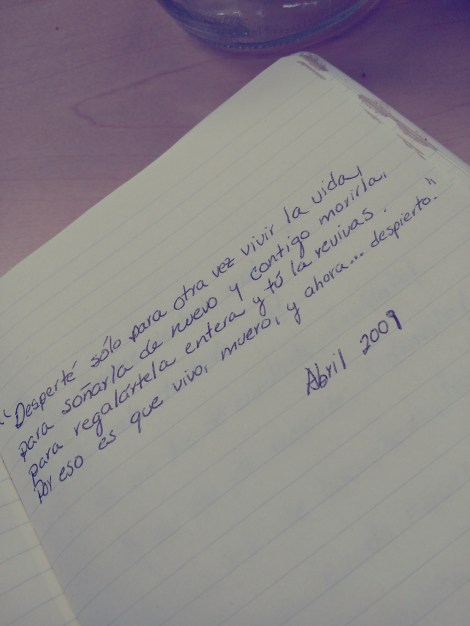 "Desperté sólo para otra vez vivir la vida,
para soñarla de nuevo y contigo morirla,
para regalártela entera y tú la revivas.
Por eso es que vivo, muero, y ahora... despierto."
Abril 2009